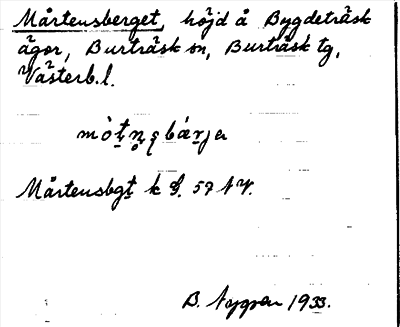 Mårtensberget, höjd å Bygdeträsk
ägor, Burträsk sn, Burträsk tg,
Västerb. l.
Mårtensbgt k bl. 59 NV.
B. Nygren 1933.